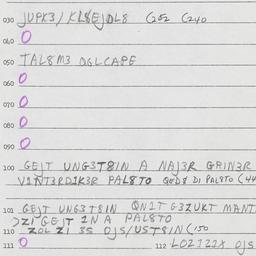 030 JUPK3/KL8EJDL8 C202 C240
040 0
050 TAL8M3 OGLCAPE
060 0
070 0
080 0
090 0
100 GEIT UNG3T8IN A NAJ3R GRIN3R
VINT3RDIK3R PAL8TO GOD8 DI PAL8TO (44
101 GEIT UNG3T8IN QNIT G3ZUKT MANT
ZI GEIT INA PAL8TO
110 ZOL ZI 3S OJS/UST8IN (150
111 0 112 LOZIZIX OJS